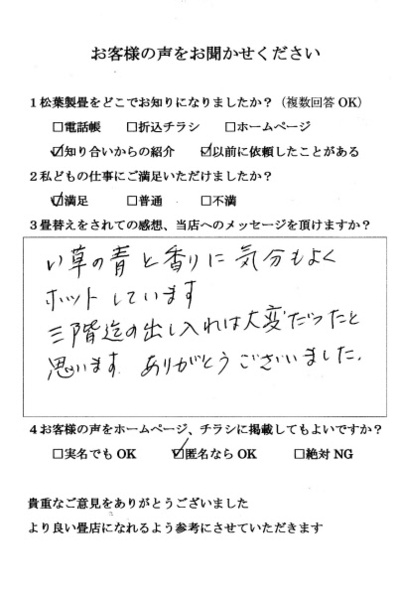 お客様の声をお聞かせください
1松葉製畳をどこでお知りになりましたか?(複数回答 OK)
□電話帳 □折込チラシ □ホームページ
☑知り合いからの紹介 ☑以前に依頼したことがある
2私どもの仕事にご満足いただけましたか?
☑満足 □普通 □不満
3畳替えをされての感想、当店へのメッセージを頂けますか?
い草の青と香りに気分もよく
ホットしています
三階迄の出し入れは大変だったと
思います。ありがとうございました。
4お客様の声をホームページ、チラシに掲載してもよいですか?
□実名でも OK ☑匿名なら OK □絶対 NG
貴重なご意見をありがとうございました
より良い畳店になれるよう参考にさせていただきます